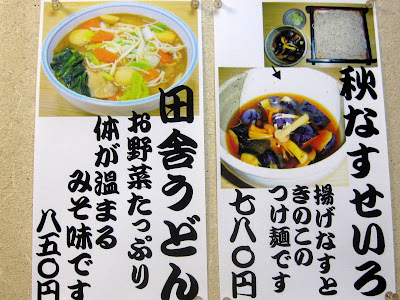 秋なすせいろ
揚げなすと
きのこの
つけ麺です
七八〇円
田舎うどん
お野菜たっぷり
体が温まる
みそ味です
八五〇円